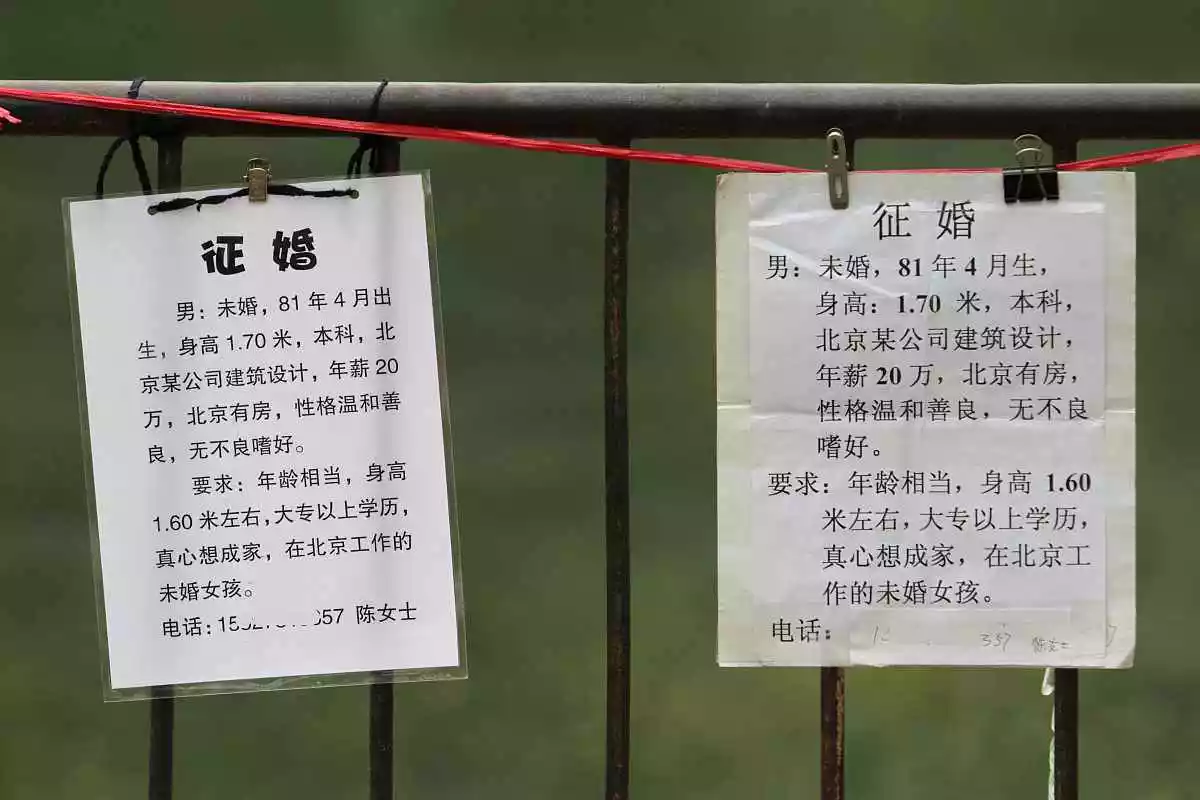 征 婚
男：未婚，81年4月出
生，身高1.70米，本科，北
京某公司建筑设计，年薪20
万，北京有房，性格温和善
良，无不良嗜好。
要求：年龄相当，身高
1.60米左右，大专以上学历，
真心想成家，在北京工作的
未婚女孩。
电话： 陈女士
征 婚
男：未婚，81年4月生，
身高：1.70 米，本科，
北京某公司建筑设计，
年薪20万，北京有房，
性格温和善良，无不良
嗜好。
要求：年龄相当，身高 1.60
米左右，大专以上学历，
真心想成家，在北京工
作的未婚女孩。
电话： 陈女士